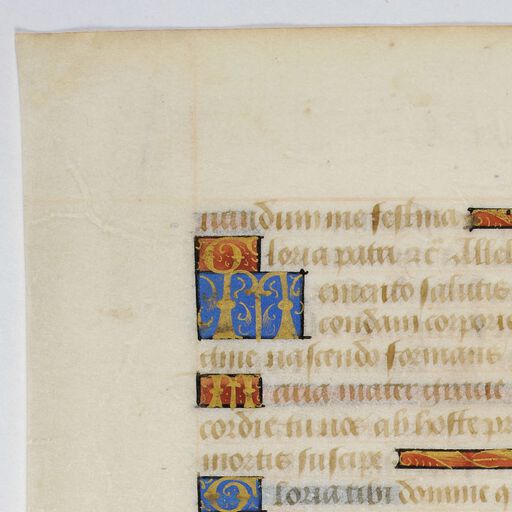 uandum me festina
Gloria patri ⁊c̃ Allel
Memento salutis
condam corporis
time nascendo formans
Maria mater gracie
cordie tu nos ab hoste pr
mortis suscipe
Gloria tibi domine q